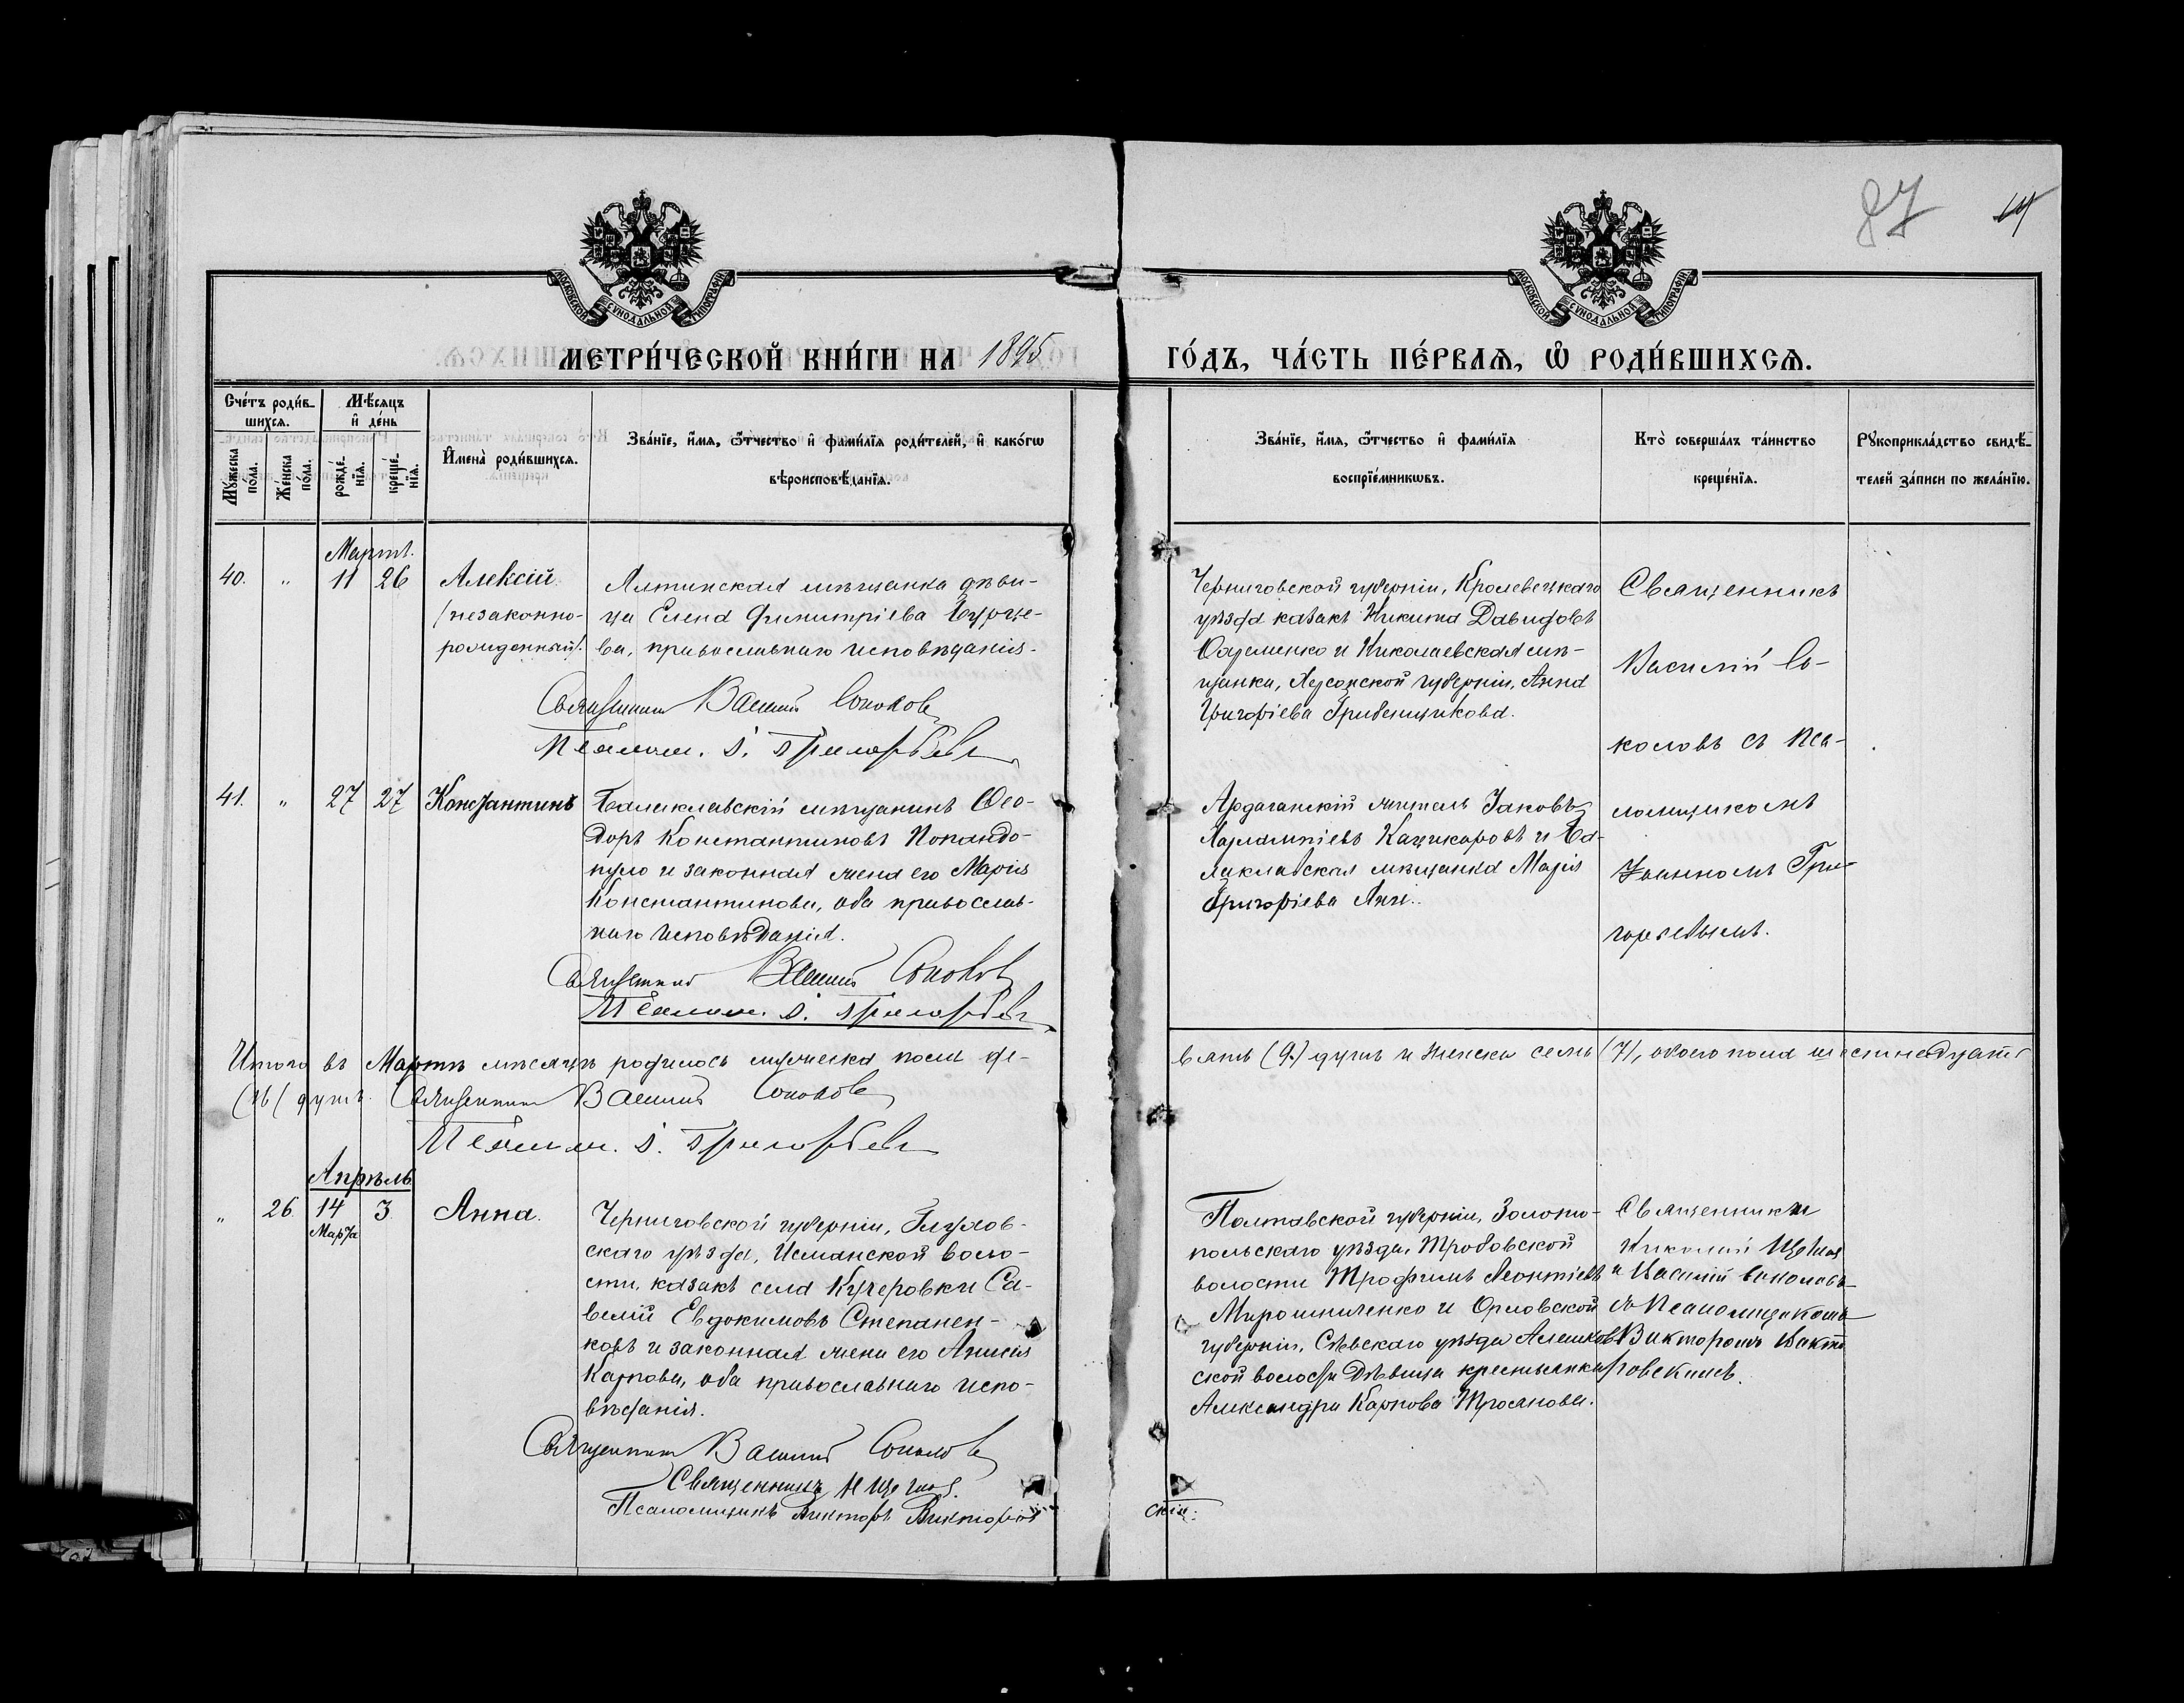 87
МОСКОВСКОЙ СѴНОДАЛЬНОЙ ТИПОГРАФІИ
МОСКОВСКОЙ СѴНОДАЛЬНОЙ ТИПОГРАФІИ
МЕТРИ́ЧЕСКОЙ КНИ́ГИ НА 1895 ГО́ДЪ, ЧА́СТЬ ПЕ́РВАѦ, Ѽ РОДИ́ВШИХСѦ.
Сче́тъ роди́в-
шихсѧ.
Мꙋ́жеска по́ла.
Же́нска по́ла.
Мѣ́сѧцъ
и҆ де́нь
рожде́-
нїѧ.
креще́-
нїѧ.
И҆мена̀ роди́вшихсѧ.
Зва́нїе, и҆́мѧ, ѻ҆́тчество и҆ фами́лїѧ роди́телей, и҆ како́гѡ
вѣроисповѣ́данїѧ.
Зва́нїе, и҆́мѧ, ѻ҆́тчество и҆ фами́лїѧ
воспрїе́мникѡвъ.
Кто̀ соверша́лъ та́инство
креще́нїѧ.
Рꙋкоприкла́дство свидѣ́-
телей за́писи по жела́нїю.
Мартъ.
40. " 11 26 Алексій
(незаконно-
рожденный).
Ялтинская мѣщанка дѣви-
ца Елена Димитріева
ва, православнаго исповѣданія.
Священникъ Василій Соколовъ
Псаломщ. І. Григорьевъ
Черниговской губерніи, Кролевецкаго
уѣзда казакъ Никита Давидовъ
и Николаевская мѣ-
щанка, Херсонской губерніи, Анна
Григоріева Гребенщикова.
Священникъ
Василій Со-
коловъ съ пса-
ломщикомъ
Іоанномъ Гри-
горьевымъ.
41. " 27 27 Константинъ
Балаклавскій мѣщанинъ Ѳео-
доръ Константиновъ Попандо-
пуло и законная жена его Марія
Константинова, оба православ-
наго исповѣданія.
Священникъ Василій Соколовъ
Псаломщ. І. Григорьевъ
Ардаганскій житель Іаковъ
Харлампіевъ и Ба-
лаклавская мѣщанка Марія
Григоріева
Итого въ Мартѣ мѣсяцѣ родилось мужеска пола де-
вять (9) душъ и женска семь (7), обоего пола шестнадцать
(16) душъ. Священникъ Василій Соколовъ
Псаломщ. І. Григорьевъ
Апрѣль
" 26 14 3 Анна.
Марта
Черниговской губерніи, Глухов-
скаго уѣзда, Есманской воло-
сти, казакъ села Кучеровки Са-
велій Евдокимовъ Степанен-
ковъ и законная жена его Анисія
Карпова, оба православнаго испо-
вѣданія.
Священникъ Василій Соколовъ
Священникъ Н
Псаломщикъ Викторъ Викторов
скій.
Полтавской губерніи, Золото-
польскаго уѣзда,
волости Трофимъ Леонтіевъ
Мирошниченко и Орловской
губерніи, Сѣвскаго уѣзда Алешков
ской волости дѣвица крестьянка
Александра Карпова Троянова.
Священники
Николай
и Василій Соколовъ
съ Псаломщикомъ
Викторомъ Викто
ровскимъ.